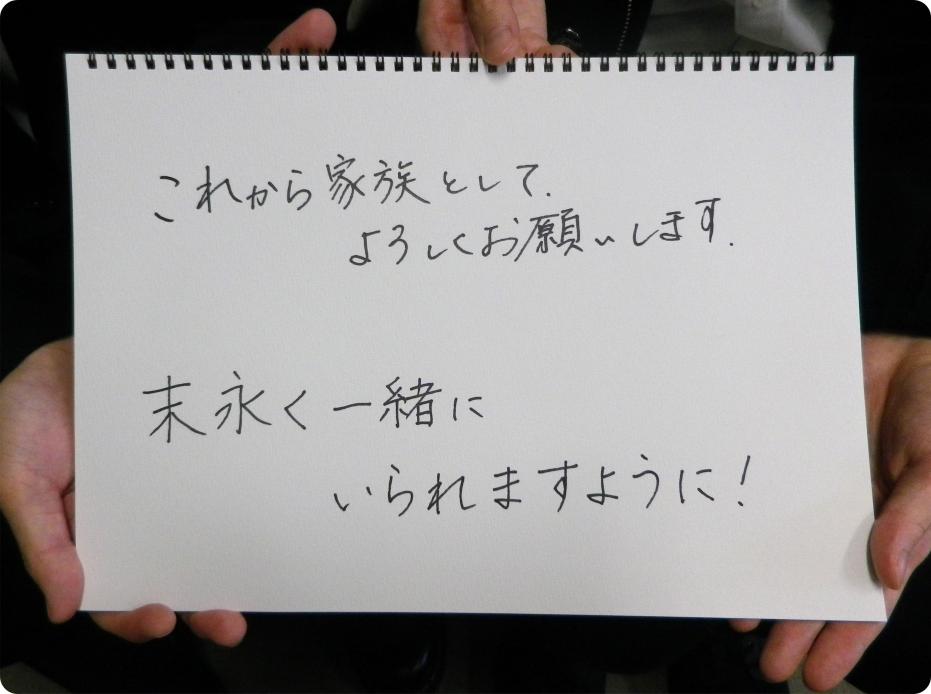 これから家族として.
よろしくお願いします.
末永く一緒に
いられますように!